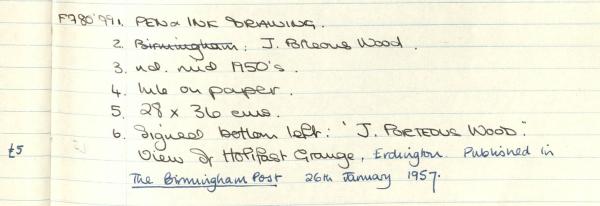 F780'99 1. PEN & INK DRAWING.
2. Birmingham; J. Porteous Wood.
3. nd. mid 1950's.
4. Ink on paper.
5. 28 x 36 cms.
6. Signed bottom left: "J. PORTEOUS WOOD."
£5 View of Holifast Grange, Erdington. Published in
The Birmingham Post 26th January 1957.